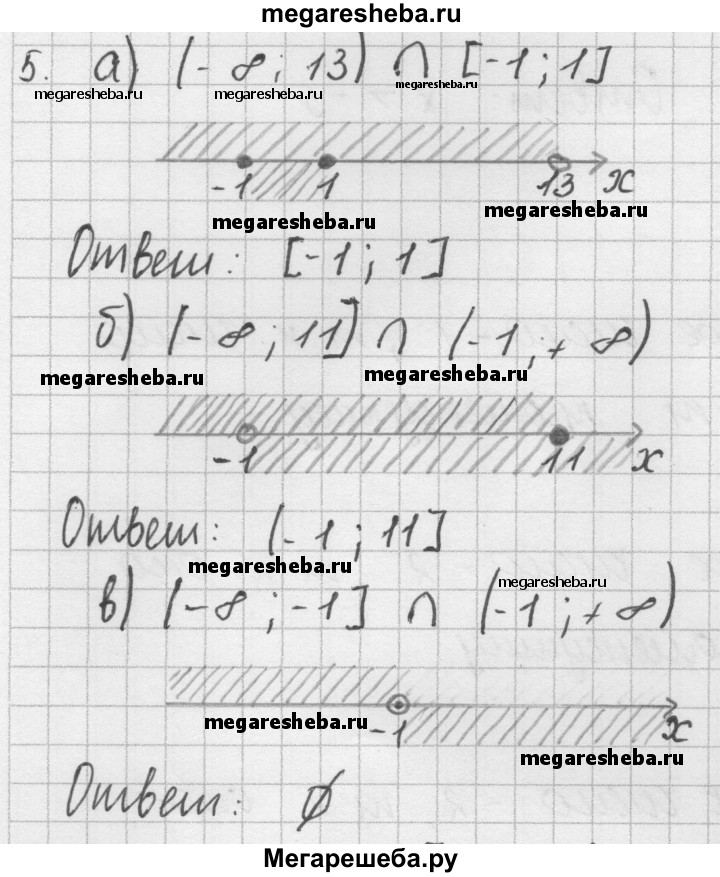 megaresheba.ru
5. а) (-∞; 13) ∩ [-1; 1]
megaresheba.ru megaresheba.ru megaresheba.ru
-1 1 13 x
megaresheba.ru megaresheba.ru
Ответ: [-1; 1]
б) (-∞; 11] ∩ (-1; +∞)
megaresheba.ru megaresheba.ru
-1 11 x
Ответ: (-1; 11]
megaresheba.ru megaresheba.ru
в) (-∞; -1] ∩ (-1; +∞)
-1 x
megaresheba.ru megaresheba.ru
Ответ: ∅
Мегарешеба.ру